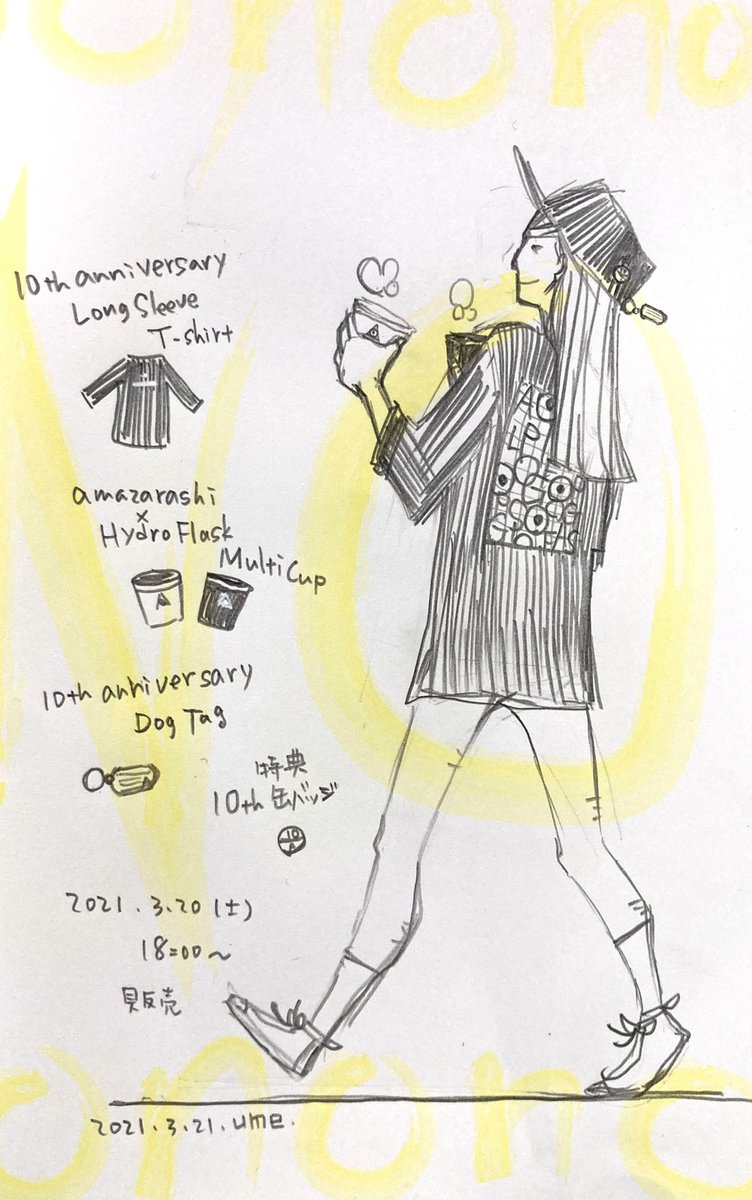 onono
10th anniversary
Long Sleeve
T-shirt
NO
amazarashi
×
Hydro Flask
Multi Cup
10th anniversary
Dog Tag
特典
10th 缶バッジ
10
A
2021.3.20(土)
18:00〜
販売
onono
2021.3.21.ume.